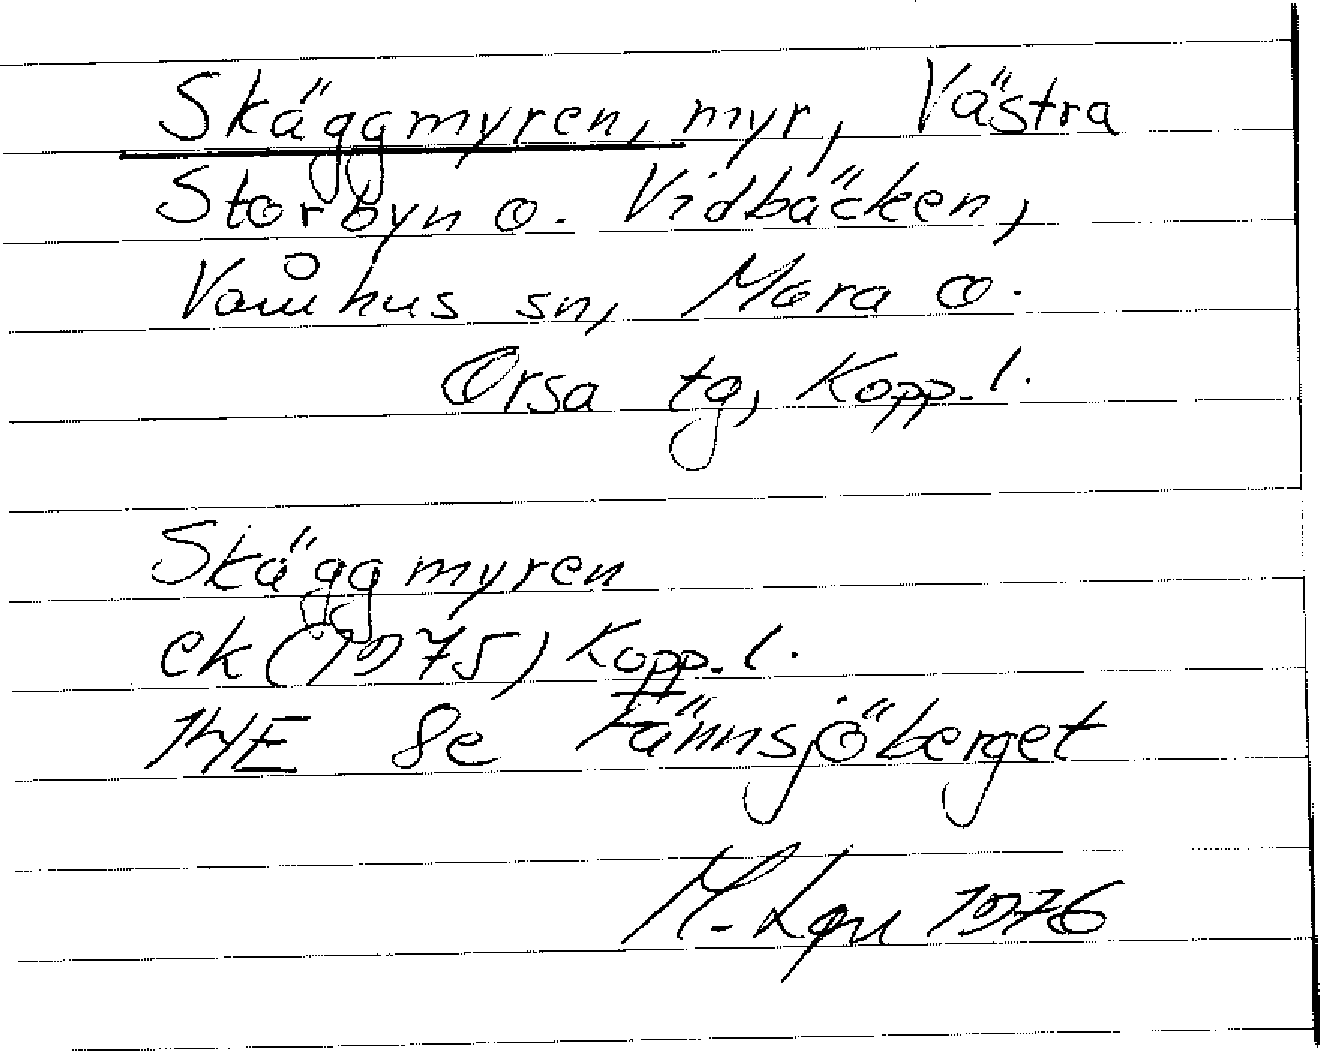 Skäggmyren, myr, Västra
Storbyn o. Vidbäcken,
Våmhus sn, Mora o.
Orsa tg, Kopp. l.
Skäggmyren
ek (1975) Kopp. l.
14E 8e Fännsjöberget
1976